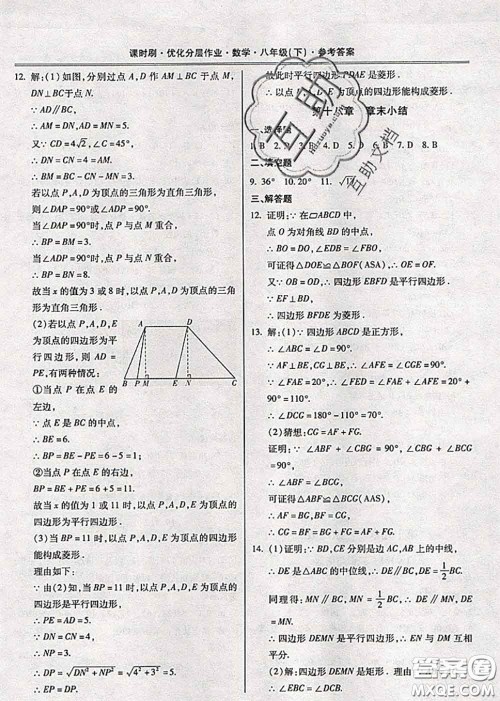 课时刷·优化分层作业·数学·八年级(下)·参考答案
12. 解:(1)如图,分别过点 A,D 作 AM⊥BC 于点 M,
DN⊥BC于点 N.
∵ AD∥BC,
∴ AM=DN,AD=MN=5.
又∵ CD=4√2,∠C=45°,
∴ DN=CN=4=AM.
∴ BM=CB-CN-MN=3.
若以点 P,A,D,E 为顶点的三角形为直角三角形,
则∠DAP=90°或∠ADP=90°,
当∠DAP=90°时,点 P 与点 M 重合,
∴ BP=BM=3.
当∠ADP=90°时,点 P 与点 N 重合,
∴ BP=BN=8.
故当 x 的值为 3 或 8 时,以点 P,A,D,E 为顶点的三角形
为直角三角形.
(2)若以点 P,A,D,E 为
顶点的四边形为平行
四边形,则 AD=PE,
有两种情况:
①当点 P 在点 E 的
左边,
∵ 点 E 是 BC 的中点,
∴ BE=6.
∴ BP=BE-PE=6-5=1;
②当点 P 在点 E 的右边,
BP=BE+PE=6+5=11.
故当 x 的值为 1 或 11 时,以点 P,A,D,E 为顶点的四
边形为平行四边形.
(3)当 BP=11 时,以点 P,A,D,E 为顶点的四边形
能构成菱形.
理由如下:
由(2)知,当 BP=11 时,以点 P,A,D,E 为顶点的四
边形是平行四边形.
∴ PE=AD=5.
∵ DN=CN=4,
∴ NP=3.
∴ DP=√DN²+NP²=√4²+3²=5.
∴ EP=DP.
A D
B P M E N C
故此时平行四边形 PDAE 是菱形.
∴ 以点 P,A,D,E 为顶点的四边形能构成菱形.
章末小结
一、选择题
1. B 2. 3. B 4. D 5. D 6. D 7. D 8. B
二、填空题
9. 36° 10. 20° 11.
三、解答题
12. 证明:在▱ABCD 中,
点 O 为对角线 BD 的中点,
∴ BO=DO,∠EDB=∠FBO.
可证得△DOE≌△BOF(ASA),∴ OE=OF.
又∵ OB=OD,∴ 四边形 EBFD 是平行四边形.
∵ EF⊥BD,
∴ 四边形 BFDE 为菱形.
13. 解:(1)∵ 四边形 ABCD 是正方形,
∴ ∠ABC=∠D=90°.
∵ AF⊥BE,CG⊥BE,
∴ ∠AFB=∠CGB=90°.
∴ ∠ABF=∠ABC+∠CBE=∠D+∠CBE=90°+20°
=110°.
∴ ∠DCG=180°-110°=70°.
(2)猜想:CG=AF+FG.
证明:∵ ∠ABF+∠CBG=90°,∠BCG+∠CBG=90°,
∴ ∠ABF=∠BCG.
可证得△ABF≌△BCG(AAS),
∴ AF=BG,BF=CG.
∵ BF=BG+FG,
∴ CG=AF+FG.
14. (1)证明:∵ BD,CE 分别是边 AC,AB 上的中线,
∴ DE 是△ABC 的中位线,∴ DE∥BC,DE=1/2 BC.
同理可得:MN∥BC,MN=1/2 BC.
∴ DE∥MN,DE=MN.
∴ 四边形 DEMN 是平行四边形,∴ DM 与 EN 互相
平分.
(2)解:四边形 DEMN 是矩形.
∴ ∠EBC=∠DCB.
互助
互助文档
答案圈
MXQE.COM